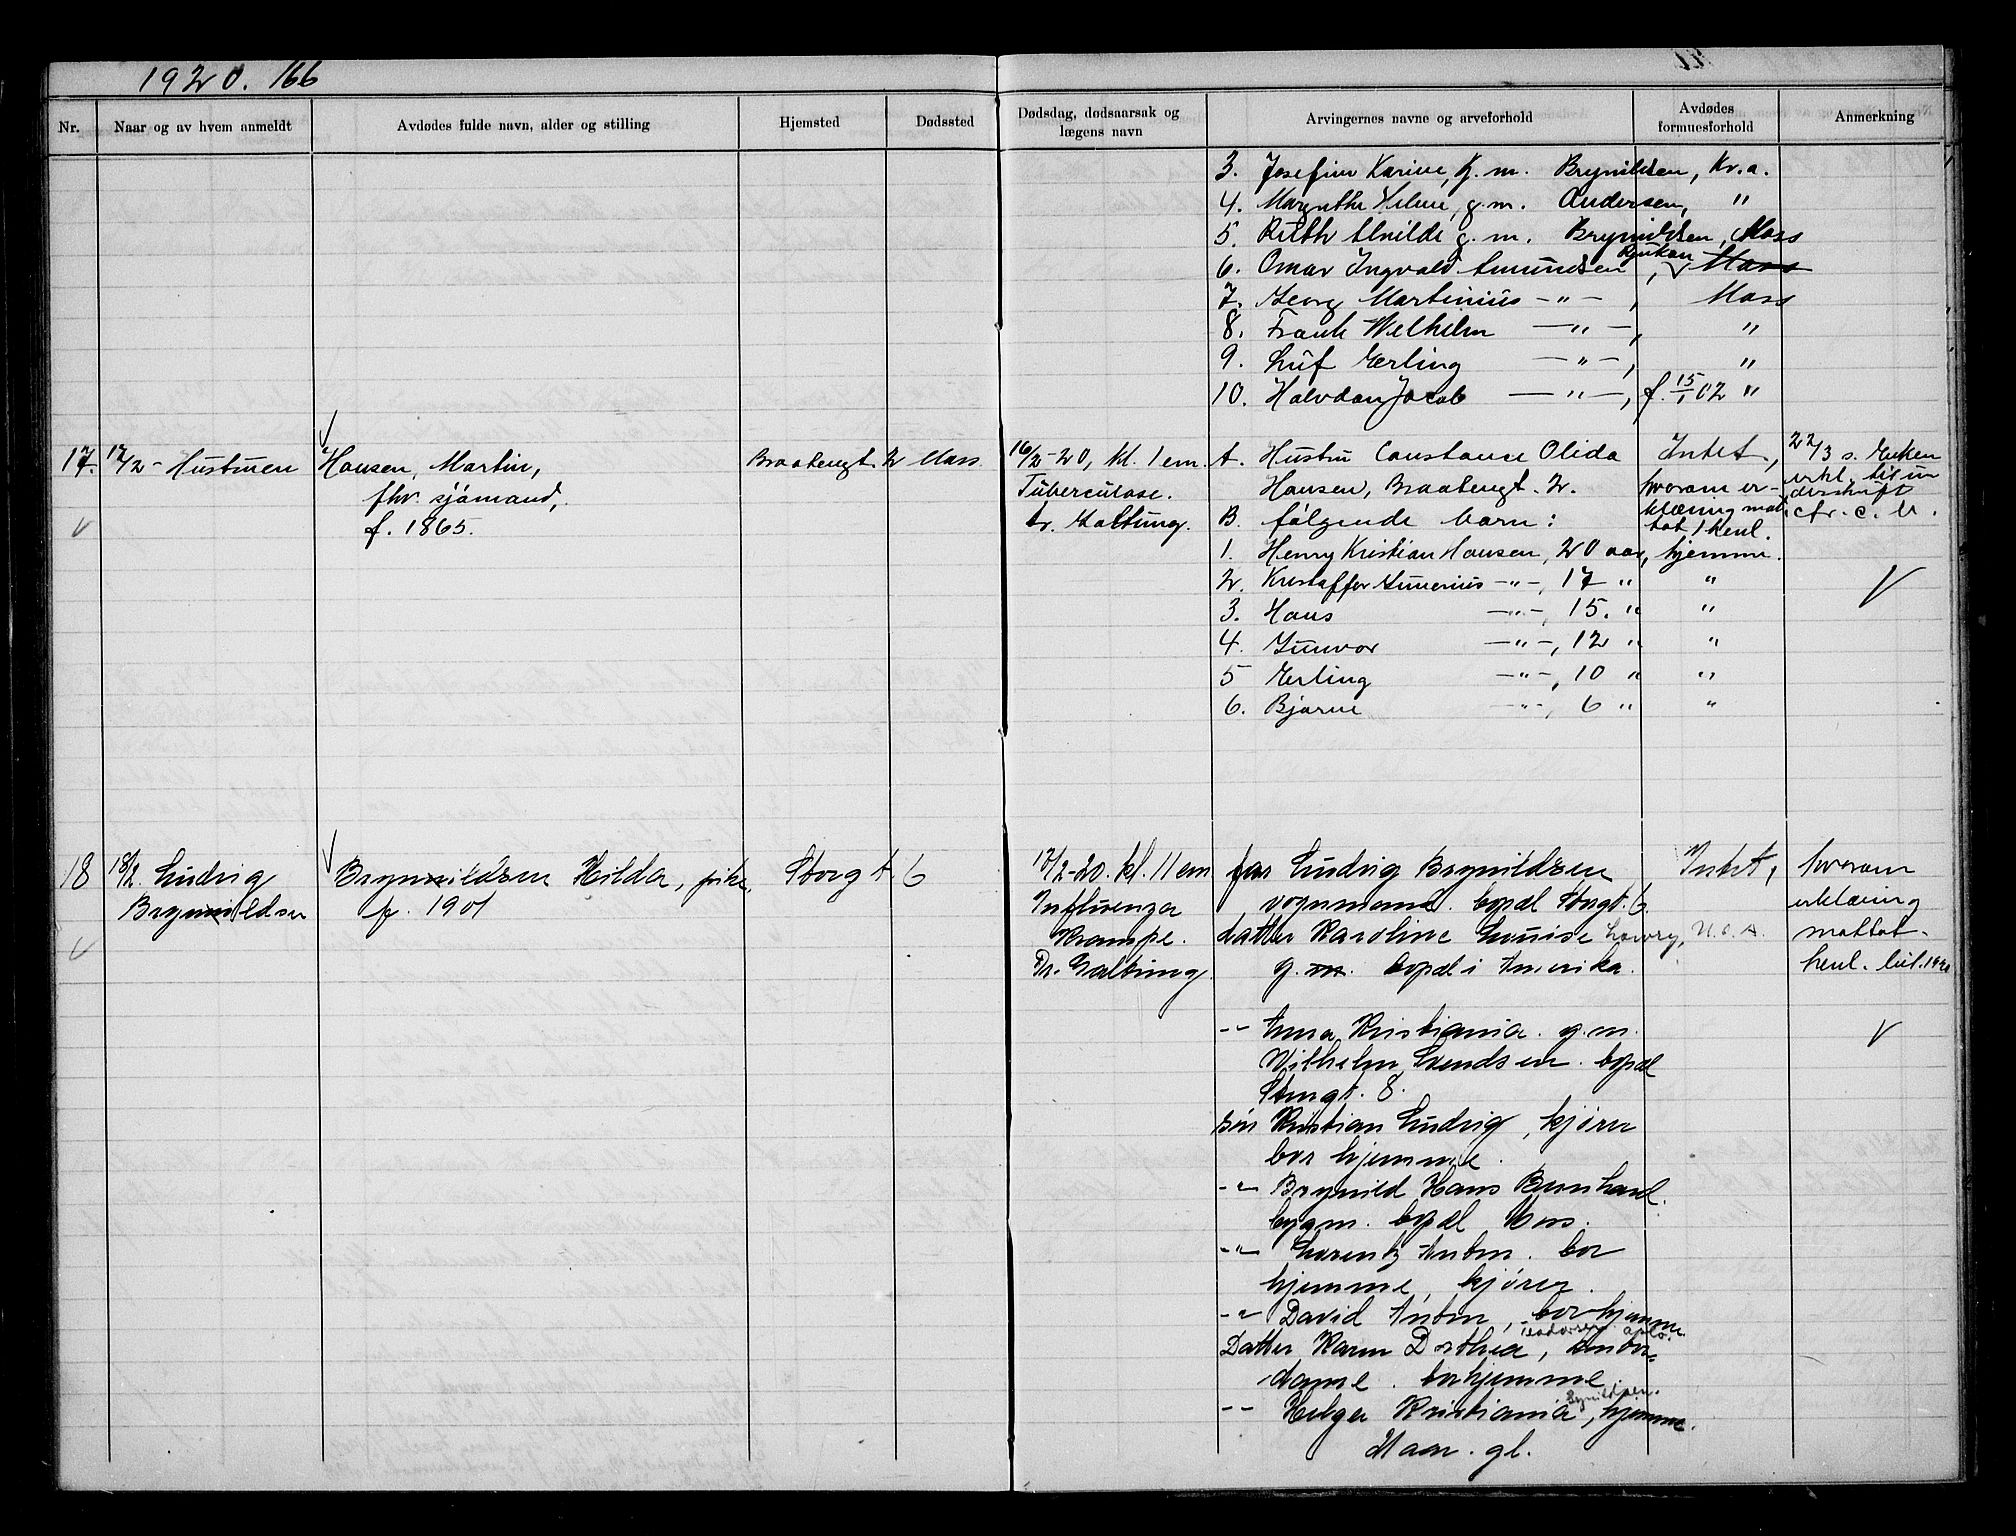 1920. 166
Nr. Naar og av hvem anmeldt Avdødes fulde navn, alder og stilling Hjemsted Dødssted Dødsdag, dødsaarsak og lægens navn Arvingernes navne og arveforhold Avdødes formuesforhold Anmerkning
3. Josefine Karine, g. m. Brynildsen, Kr.a.
4. Margrethe Helene, g. m. Andersen, "
5. Ruth Alvilde g. m. Brynildsen, Moss
Rjukan
6. Omar Ingvald Amundsen, Moss
7. Georg Martinius -"-, Moss
8. Frank Wilhelm -"-, "
9. Leif Erling -"-, "
10. Halvdan Jacob -"-, f. 15/1 02 "
17. 17/2 - Hustruen Hansen, Martin, Braatengt. 2 Moss. 16/2-20, kl. 1 em. A. Hustru Constance Olida Intet, 22/3 s. Enken
fhv. sjømand, Tuberculose. Hansen, Braatengt. 2. hvorom er- erkl. til un
f. 1865. Dr. Galtung. B. følgende barn: klæring mot- derskrift
tat, 1 henl.
1. Henry Kristian Hansen, 20 aar, hjemme.
2. Kristoffer Gunerius -"-, 17 " "
3. Hans -"-, 15. " "
4. Gunvor -"-, 12 " "
5 Erling -"-, 10 " "
6. Bjarne -"-, 6 " "
18 18/2. Ludvig Brynildsen Hilda, pike, Storgt. 6 17/2-20. kl. 11 em far Ludvig Brynildsen Intet, hvorom
Brynildsen f. 1901 Influenza vognmand. bopæl Storgt. 6. erklæring
Krampe. datter Karoline Louise Lowry, U.S.A. mottat.
Dr. Galtung. g. m. bopæl i Amerika. henl.
-"- Anna Kristiania. g. m.
Vilhelm Svendsen. bopæl
Storgt. 8.
søn Kristian Ludvig, kjører
bor hjemme.
-"- Brynild Hans Bernhard.
bygm. bopæl Moss.
-"- Lorentz Anton. bor
hjemme, kjører.
-"- David Anton, bor hjemme
Datter Karen Dorthea, kontor-
dame. bor hjemme.
Brynildsen.
-"- Helga Kristiania, hjemme.